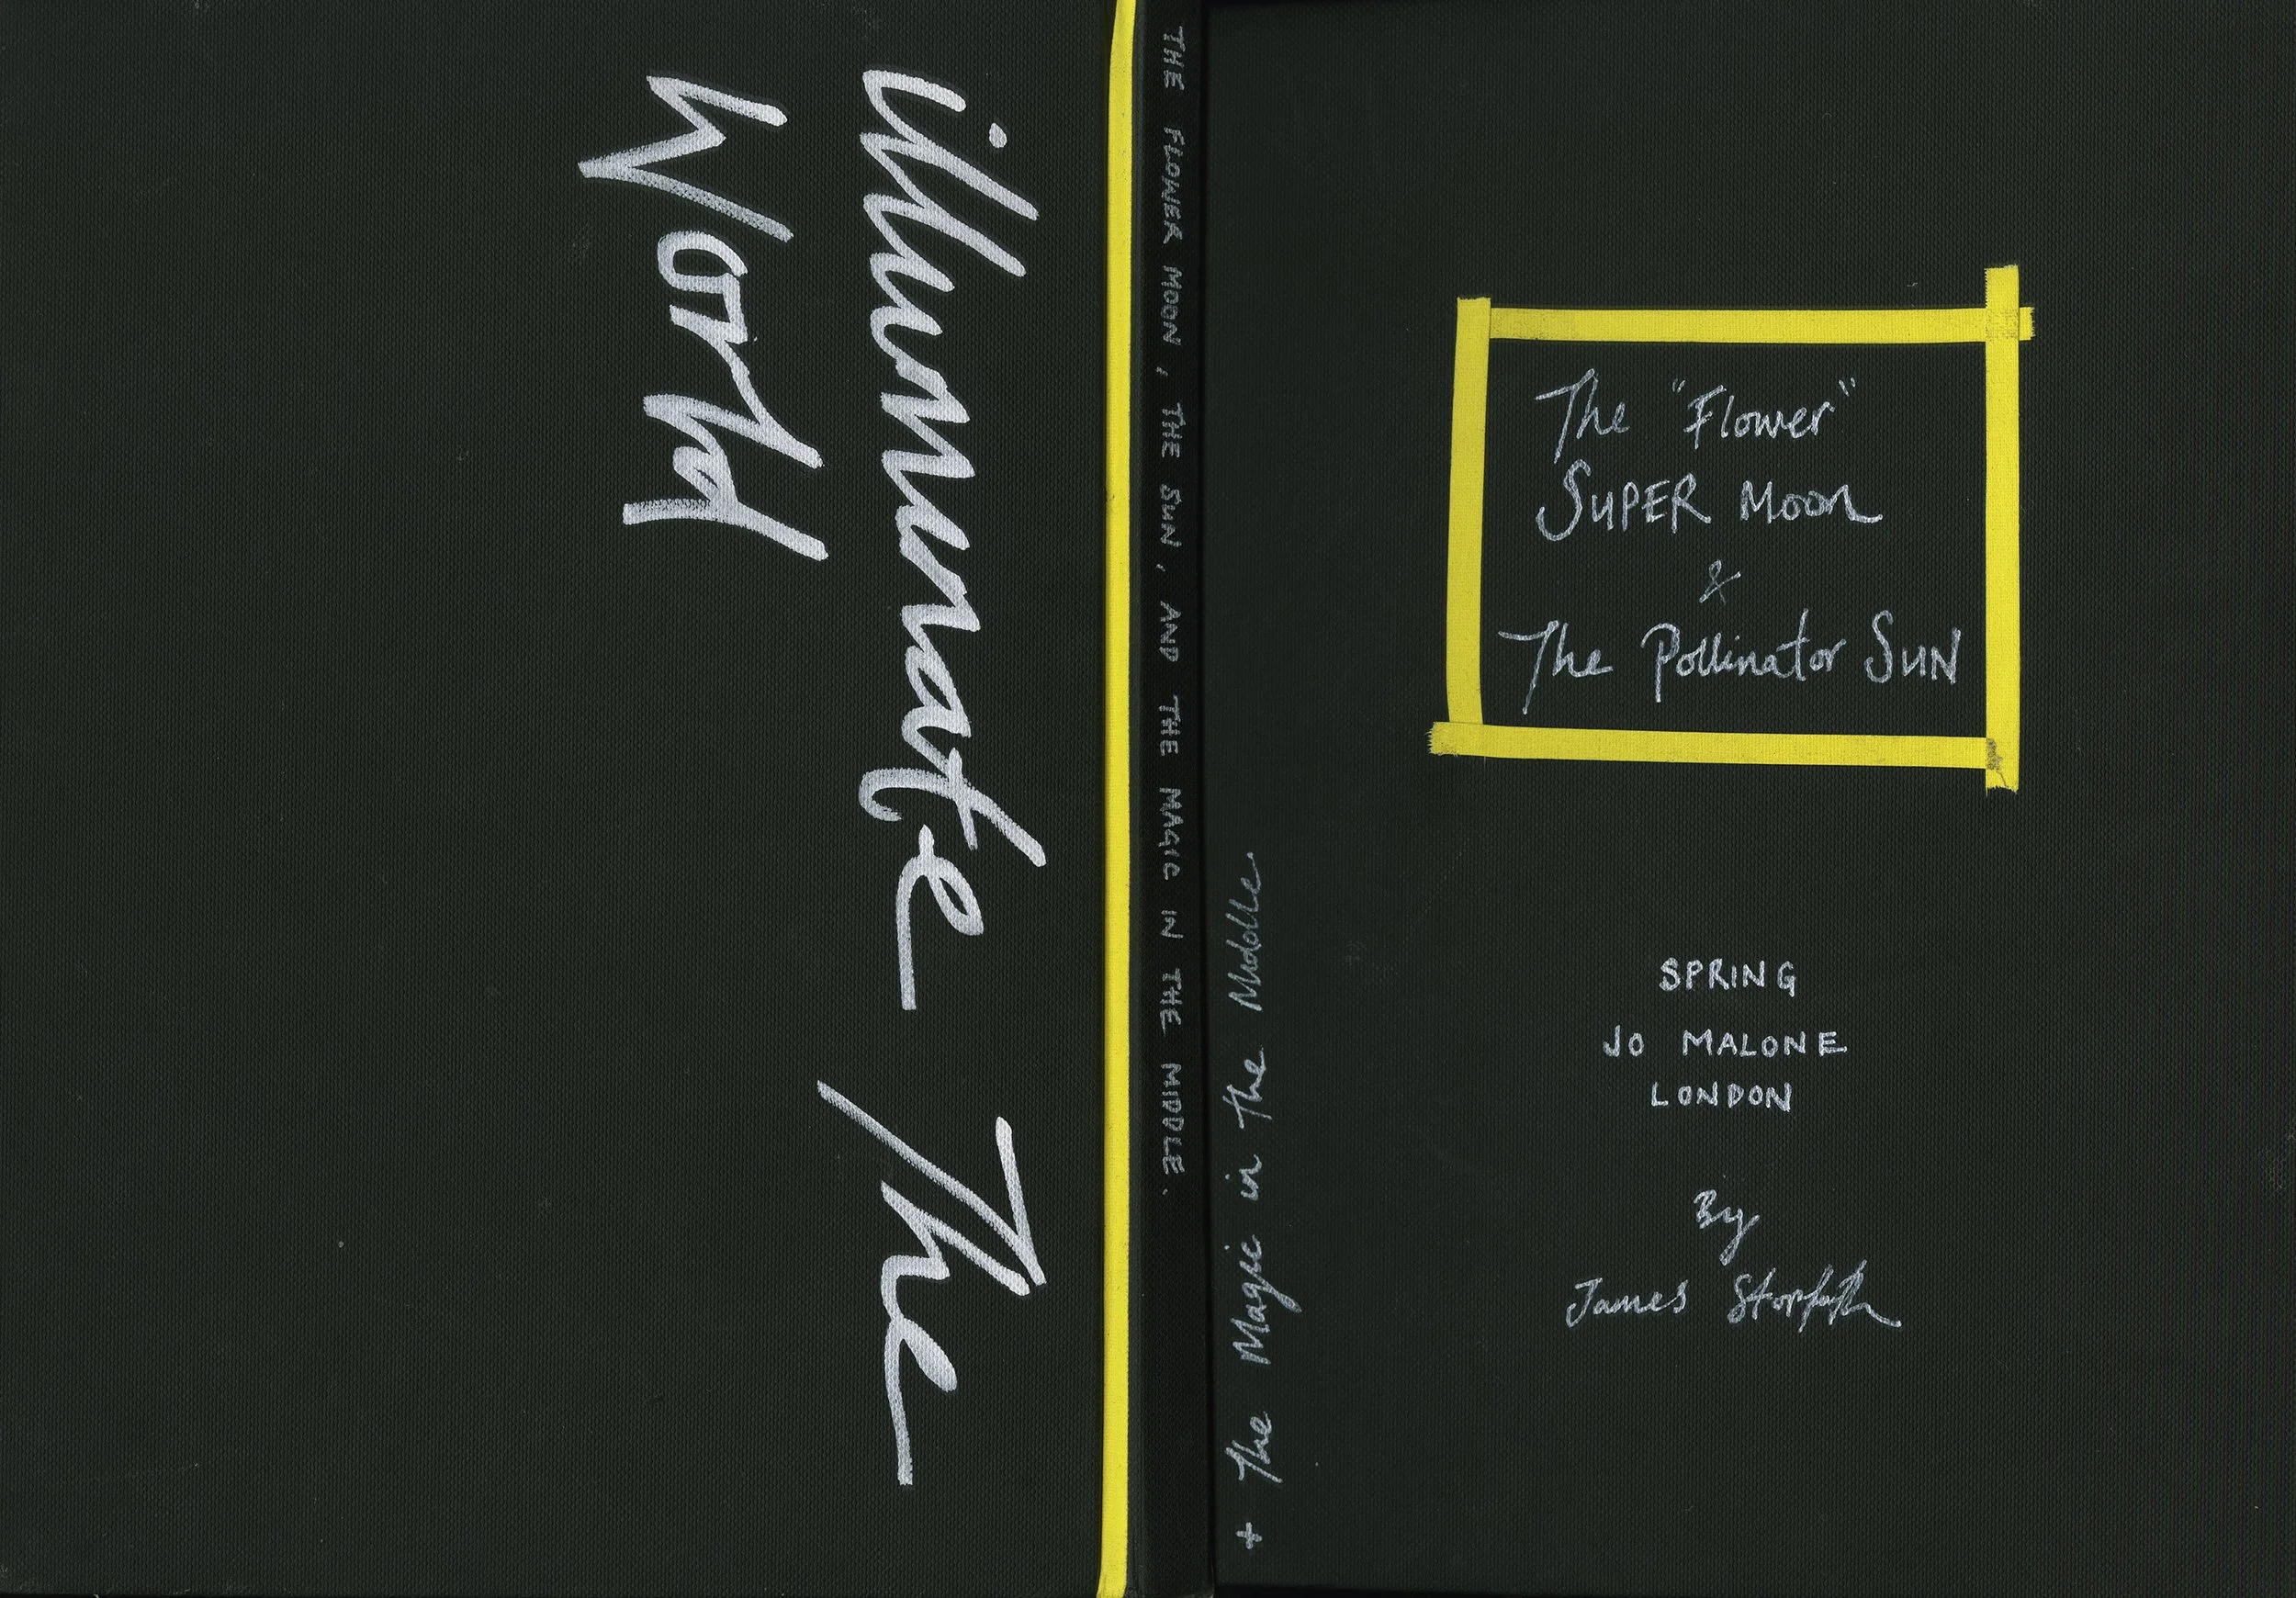 illuminate The
World
THE FLOWER MOON, THE SUN, AND THE MAGIC IN THE MIDDLE.
+ The Magic in the Middle.
The "Flower"
SUPER MOON
&
The Pollinator SUN
SPRING
JO MALONE
LONDON
By
James